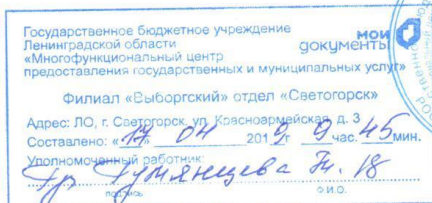 Государственное бюджетное учреждение
Ленинградской области
«Многофункциональный центр
предоставления государственных и муниципальных услуг»
мои
документы
Филиал «Выборгский» отдел «Светогорск»
Адрес: ЛО, г. Светогорск, ул. Красноармейская, д. 3
Составлено: «17» 04 2019г 9 час. 45 мин.
Уполномоченный работник:
Румянцева Н. В
подпись Ф.И.О.